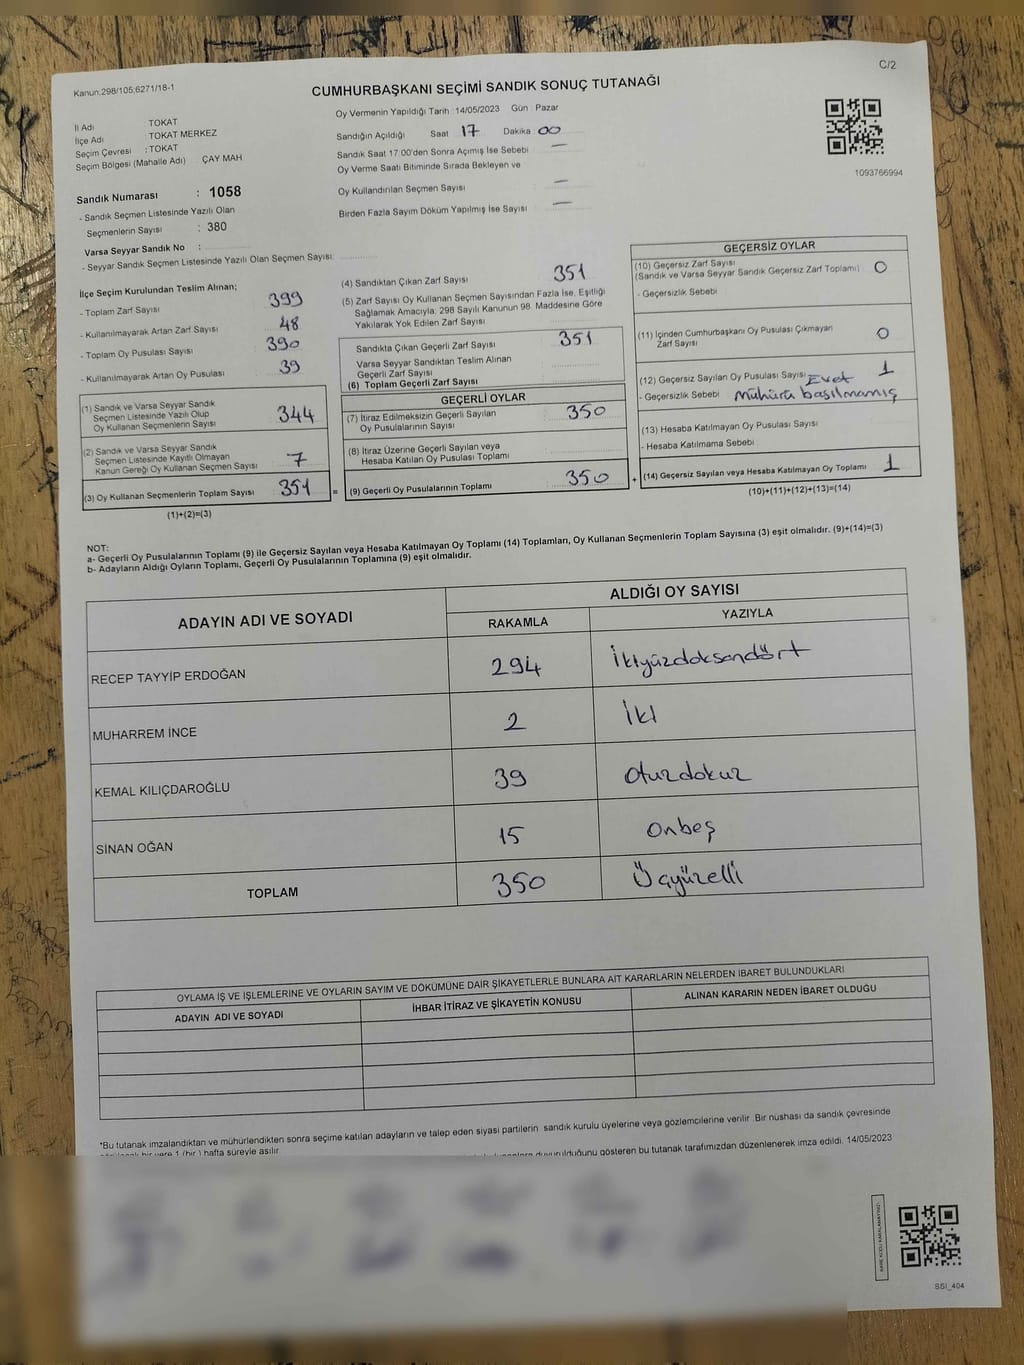 C/2
Kanun:298/105;6271/18-1
CUMHURBAŞKANI SEÇİMİ SANDIK SONUÇ TUTANAĞI
İl Adı TOKAT
İlçe Adı TOKAT MERKEZ
Seçim Çevresi :TOKAT
Seçim Bölgesi (Mahalle Adı) ÇAY MAH
Sandık Numarası : 1058
- Sandık Seçmen Listesinde Yazılı Olan
Seçmenlerin Sayısı : 380
Varsa Seyyar Sandık No :
- Seyyar Sandık Seçmen Listesinde Yazılı Olan Seçmen Sayısı:
Oy Vermenin Yapıldığı Tarih 14/05/2023 Gün Pazar
Sandığın Açıldığı Saat 17 Dakika 00
Sandık Saat 17:00'den Sonra Açmış İse Sebebi —
Oy Verme Saati Bitiminde Sırada Bekleyen ve
Oy Kullandırılan Seçmen Sayısı —
Birden Fazla Sayım Döküm Yapılmış İse Sayısı —
1093766994
İlçe Seçim Kurulundan Teslim Alınan;
- Toplam Zarf Sayısı 399
- Kullanılmayarak Artan Zarf Sayısı 48
- Toplam Oy Pusulası Sayısı 390
- Kullanılmayarak Artan Oy Pusulası 39
(1) Sandık ve Varsa Seyyar Sandık
Seçmen Listesinde Yazılı Olup
Oy Kullanan Seçmenlerin Sayısı 344
(2) Sandık ve Varsa Seyyar Sandık
Seçmen Listesinde Kayıtlı Olmayan
Kanun Gereği Oy Kullanan Seçmen Sayısı 7
(3) Oy Kullanan Seçmenlerin Toplam Sayısı 351
(1)+(2)=(3)
(4) Sandıktan Çıkan Zarf Sayısı 351
(5) Zarf Sayısı Oy Kullanan Seçmen Sayısından Fazla İse, Eşitliği
Sağlamak Amacıyla, 298 Sayılı Kanunun 98. Maddesine Göre
Yakılarak Yok Edilen Zarf Sayısı
Sandıkta Çıkan Geçerli Zarf Sayısı 351
Varsa Seyyar Sandıktan Teslim Alınan
Geçerli Zarf Sayısı
(6) Toplam Geçerli Zarf Sayısı
GEÇERLİ OYLAR
(7) İtiraz Edilmeksizin Geçerli Sayılan
Oy Pusulalarının Sayısı 350
(8) İtiraz Üzerine Geçerli Sayılan veya
Hesaba Katılan Oy Pusulası Toplamı
= (9) Geçerli Oy Pusulalarının Toplamı 350 +
GEÇERSİZ OYLAR
(10) Geçersiz Zarf Sayısı
(Sandık ve Varsa Seyyar Sandık Geçersiz Zarf Toplamı) 0
- Geçersizlik Sebebi
(11) İçinden Cumhurbaşkanı Oy Pusulası Çıkmayan
Zarf Sayısı 0
(12) Geçersiz Sayılan Oy Pusulası Sayısı 1
Evet
- Geçersizlik Sebebi mühürü basılmamış
(13) Hesaba Katılmayan Oy Pusulası Sayısı
- Hesaba Katılmama Sebebi
(14) Geçersiz Sayılan veya Hesaba Katılmayan Oy Toplamı 1
(10)+(11)+(12)+(13)=(14)
NOT:
a- Geçerli Oy Pusulalarının Toplamı (9) ile Geçersiz Sayılan veya Hesaba Katılmayan Oy Toplamı (14) Toplamları, Oy Kullanan Seçmenlerin Toplam Sayısına (3) eşit olmalıdır. (9)+(14)=(3)
b- Adayların Aldığı Oyların Toplamı, Geçerli Oy Pusulalarının Toplamına (9) eşit olmalıdır.
ADAYIN ADI VE SOYADI
ALDIĞI OY SAYISI
RAKAMLA YAZIYLA
RECEP TAYYİP ERDOĞAN 294 İkiyüzdoksandört
MUHARREM İNCE 2 İki
KEMAL KILIÇDAROĞLU 39 otuzdokuz
SİNAN OĞAN 15 onbeş
TOPLAM 350 Üçyüzelli
OYLAMA İŞ VE İŞLEMLERİNE VE OYLARIN SAYIM VE DÖKÜMÜNE DAİR ŞİKAYETLERLE BUNLARA AİT KARARLARIN NELERDEN İBARET BULUNDUKLARI
ADAYIN ADI VE SOYADI İHBAR İTİRAZ VE ŞİKAYETİN KONUSU ALINAN KARARIN NEDEN İBARET OLDUĞU
*Bu tutanak imzalandıktan ve mühürlendikten sonra seçime katılan adayların ve talep eden siyasi partilerin sandık kurulu üyelerine veya gözlemcilerine verilir. Bir nüshası da sandık çevresinde
bir yere 1 (bir) hafta süreyle asılır. duyurulduğunu gösteren bu tutanak tarafımızdan düzenlenerek imza edildi. 14/05/2023
SSİ_404